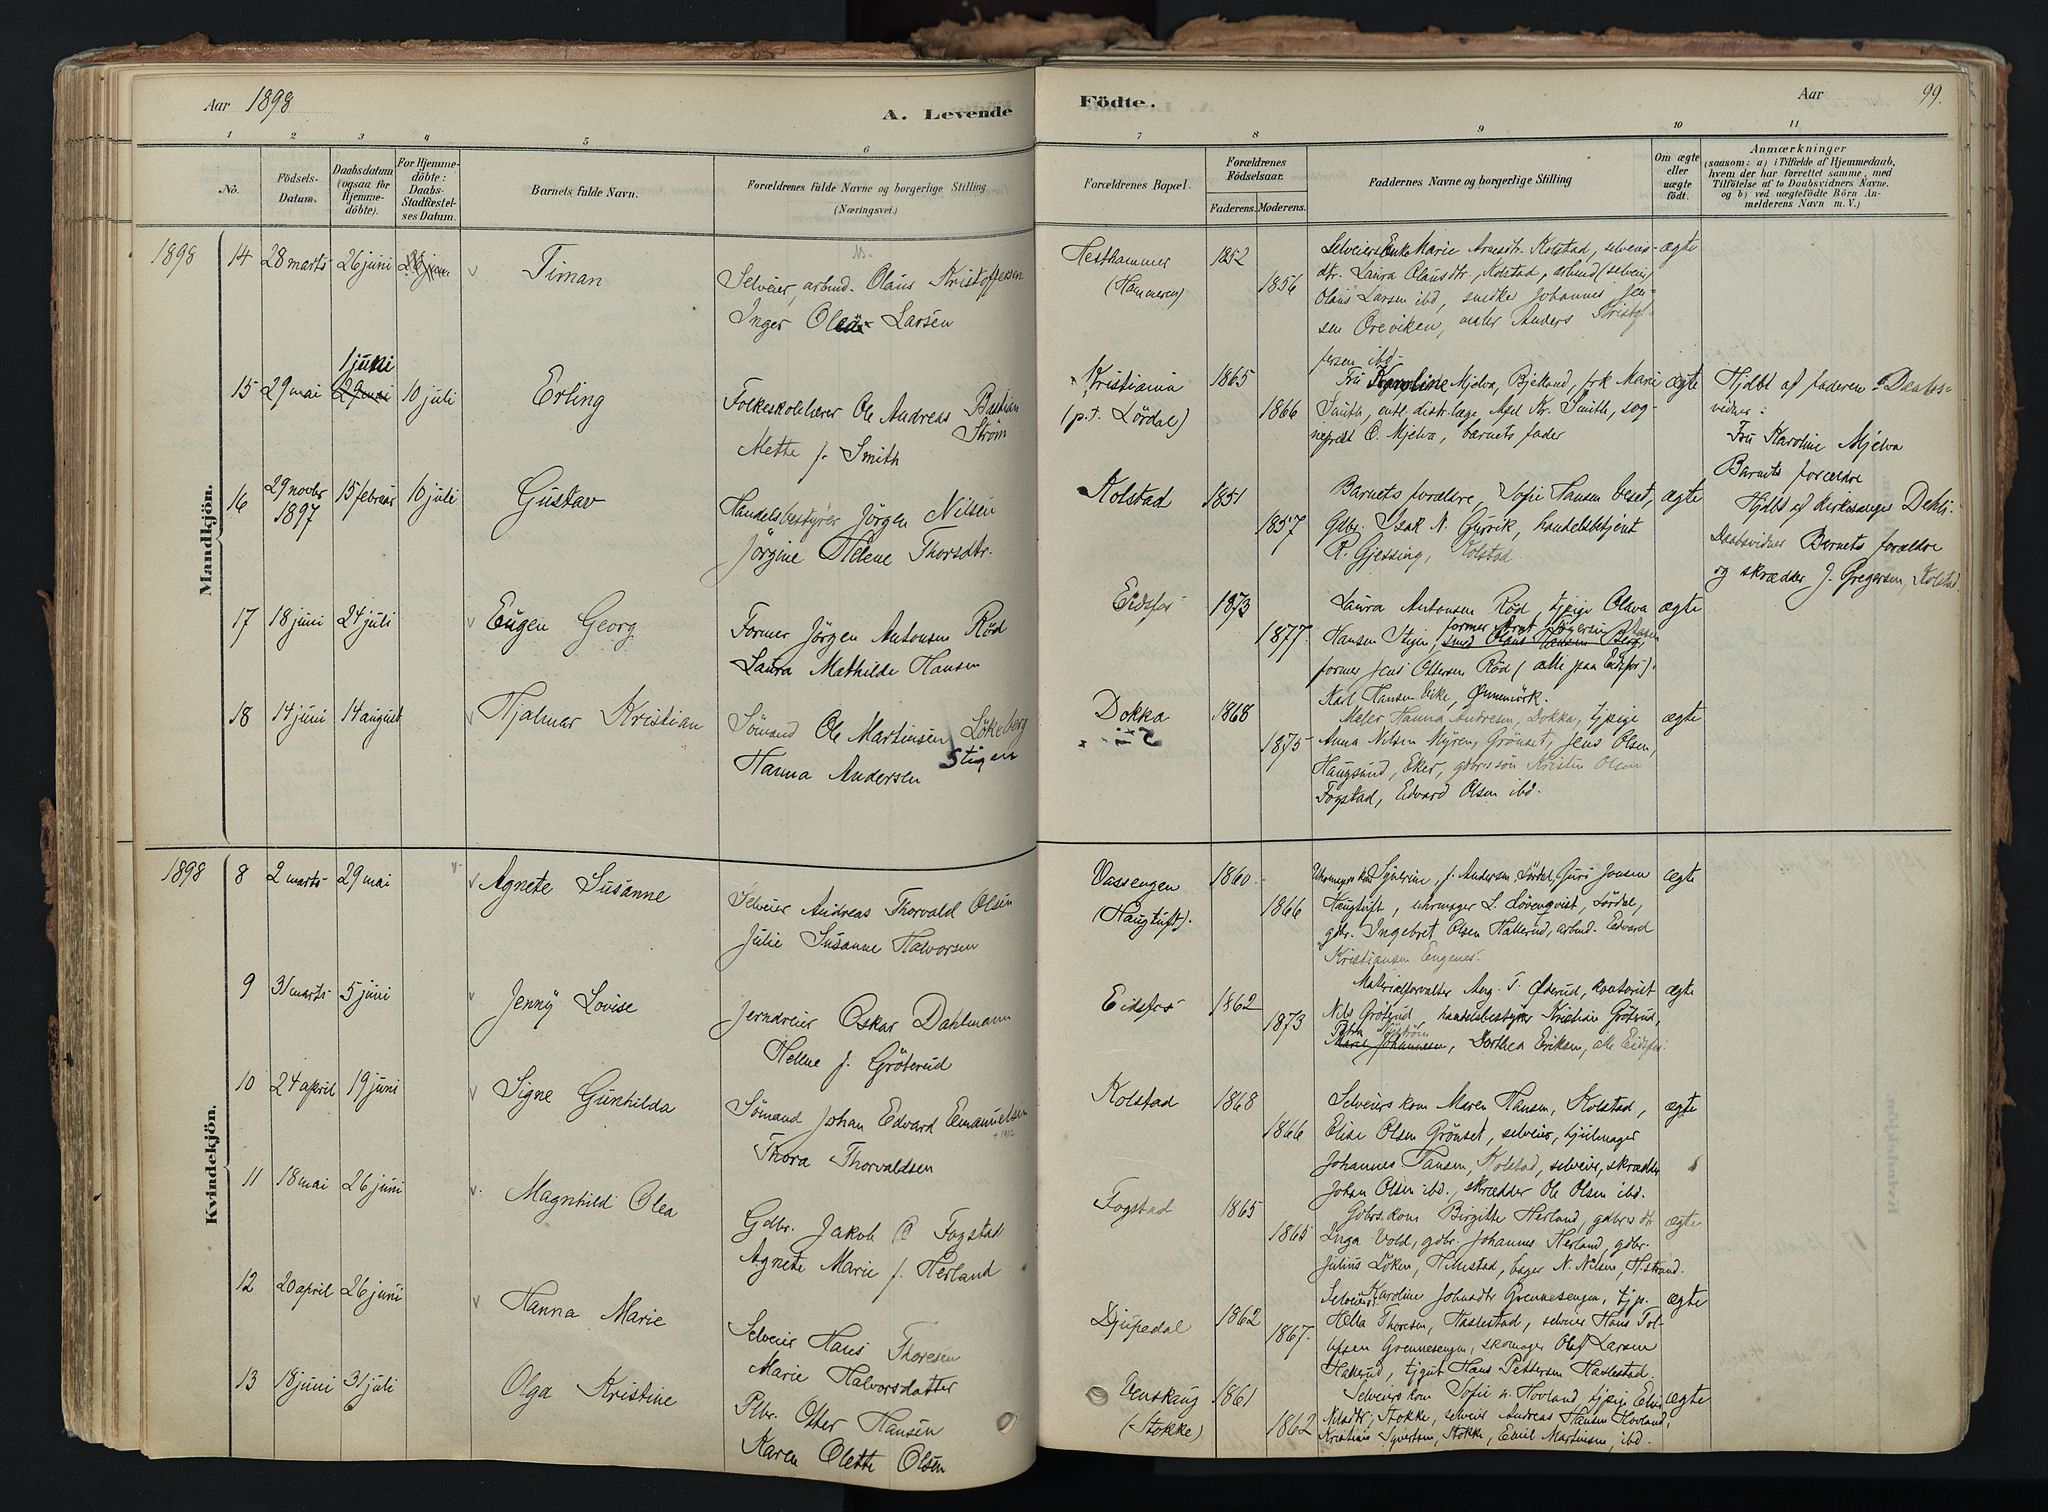 Aar 1898
A. Levende
Födte.
Aar
99.
1 2 3 4 5 6 7 8 9 10 11
No.
Födsels-
Datum.
Daabsdatum
(ogsaa for
Hjemme-
döbte).
For Hjemme-
döbte:
Daabs-
Stadfæstel-
ses Datum.
Barnets fulde Navn.
Forældrenes fulde Navne og borgerlige Stilling
(Næringsvei.)
Forældrenes Bopæl.
Forældrenes
Födselsaar.
Faderens. Moderens.
Faddernes Navne og borgerlige Stilling
Om ægte
eller
uægte
födt.
Anmærkninger
(saasom: a) i Tilfælde af Hjemmedaab,
hvem der har forrettet samme, med
Tilföielse af to Daabsvidners Navne,
og b) ved uægtefödte Börn An-
melderens Navn m. V.)
Mandkjön.
1898 14 28 marts 26 juni
Timan
Selveier, arbmd. Olaus Kristoffersen
Inger Larsen
Hesthammer
(Hammeren)
1852
1856
Selveiers Enke Marie Arnesdtr. Kolstad, selveier-
dtr. Laura Olausdtr, Kolstad, arbmd (selveier)
Olaus Larsen ibd, snedker Johannes Jen-
sen Oreviken, maler Anders Kristof-
fersen ibd.
ægte
15 29 mai 1 juni 10 juli
Erling
Folkeskolelærer Ole Andreas Bastian
Ström
Mette f. Smith
Kristiania
(p.t. Lördal)
1865
1866
Fru Karoline Mjelva, Bjelland, frk Marie
Smith, cand. distr.læge Axel Kr. Smith, sog-
neprest O. Mjelva, barnets fader
ægte
Hjdbt af faderen. Daabs-
vidner:
Fru Karoline Mjelva
Barnets forældre
16 29 novbr 1897 15 februar 10 juli
Gustav
Handelsbestyrer Jörgen Nilsen
Jörgine Helene Thorsdtr.
Kolstad
1851
1857
Barnets forældre, Sofie Hansen beset,
Gdbr. Isak N. Gurvik, handelsbetjent
R. Gjessing, Kolstad
ægte
Hjdbt af kirkesanger Dehli.
Daabsvidner Barnets forældre
og skrædder J. Gregersen, Kolstad
17 18 juni 24 juli
Eugen Georg
Former Jörgen Antonsen Röd
Laura Mathilde Hansen
Eidsfos
1873
1877.
Laura Antonsen Röd, tjpige Olava
Hansen Stigen,
former Jens Ottersen Röd (alle paa Eidsfos).
ægte
18 14 juni 14 august
Hjalmar Kristian
Sömand Ole Martinsen Lökeberg
Stigen
Hanna Andersen
Dokka
1868
1875
Karl Hansen Eike, Ønnemörk.
Möller Hanna Andresen, Dokka, tjpige
Anna Nilsen Myren, Grönset, Jens Olsen,
Haugsund, Eker, gdbrssön Kristen Olsen
Fogstad, Edvard Olsen ibd.
ægte
Kvindekjön.
1898 8 2 marts 29 mai
Agnete Susanne
Selveier Andreas Thorvald Olsen
Julie Susanne Halvorsen
Vassengen
(Haugtuft).
1860
1866
Syverine, f. Andersen Lördal, Guri Jonsen
Haugtuft, uhrmager L. Lövenqvist, Lördal,
gdbr. Ingebret Olsen Hallerud, arbmd. Edvard
Kristiansen Engenes.
ægte
9 31 marts 5 juni
Jenny Lovise
Jerndreier Oskar Dahlmann
Helene f. Gröterud
Eidsfos
1862
1873
Materialforvalter Aug. T. Øderud, kontorist
Nils Gröterud, handelsbestyrer Kristian Gröterud,
Marie Johannesen, Dorthea Eriksen, alle Eidsfos.
ægte
10 24 april 19 juni
Signe Gunhilda
Sömand Johan Edvard Emanuelsen
Thora Thorvaldsen
Kolstad
1868
1866
Selveiers kone Maren Hansen, Kolstad,
Elise Olsen Grönset, selveier, hjulmager
Johannes Hansen, Kolstad, selveier, skrædder
Johan Olsen ibd., skrædder Ole Olsen ibd.
ægte
11 18 mai 26 juni
Magnhild Olea
Gdbr. Jakob O Fogstad
Agnete Marie f. Herland
Fogstad
1865
1865
Gdbrs kone Birgitte Herland, gdbrs dtr
Inga Vold, gdbr. Johannes Herland, gdbr.
Julius Löken, Hillestad, bager N. Nilsen, H.strand.
ægte
12 20 april 26 juni
Hanna Marie
Selveier Hans Thoresen
Marie Halvorsdatter
Djupedal
1862
1867.
Selveier Karoline Johnsdtr Grennesengen, tjp.
Hella Thoresen, Haslestad, selveier Hans Tol-
lefsen Grennesengen, skomager Olaf Larsen
Hakerud, tjgut Hans Pettersen Haslestad.
ægte
13 18 juni 31 juli
Olga Kristine
Plbr. Otter Hansen
Karen Olette Olsen
Venskaug
(Stokke)
1861
1862
Selveiers kone Sofie n. Hovland, tjpige
Nilsdtr, Stokke, selveier Andreas Hansen Hovland,
Kristian Syvertsen, Stokke, Emil Martinsen, ibd.
ægte